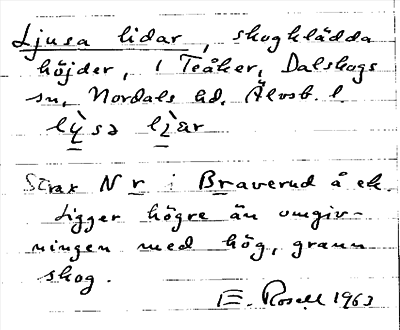 Ljusa lidar, skogklädda
höjder, i Teåker, Dalskogs
sn, Nordals hd. Älvsb. l.
lỳsə lìar
Strax N r i Braverud å ek.
Ligger högre än omgiv-
ningen med hög, grann
skog.
E. Rosell 1963